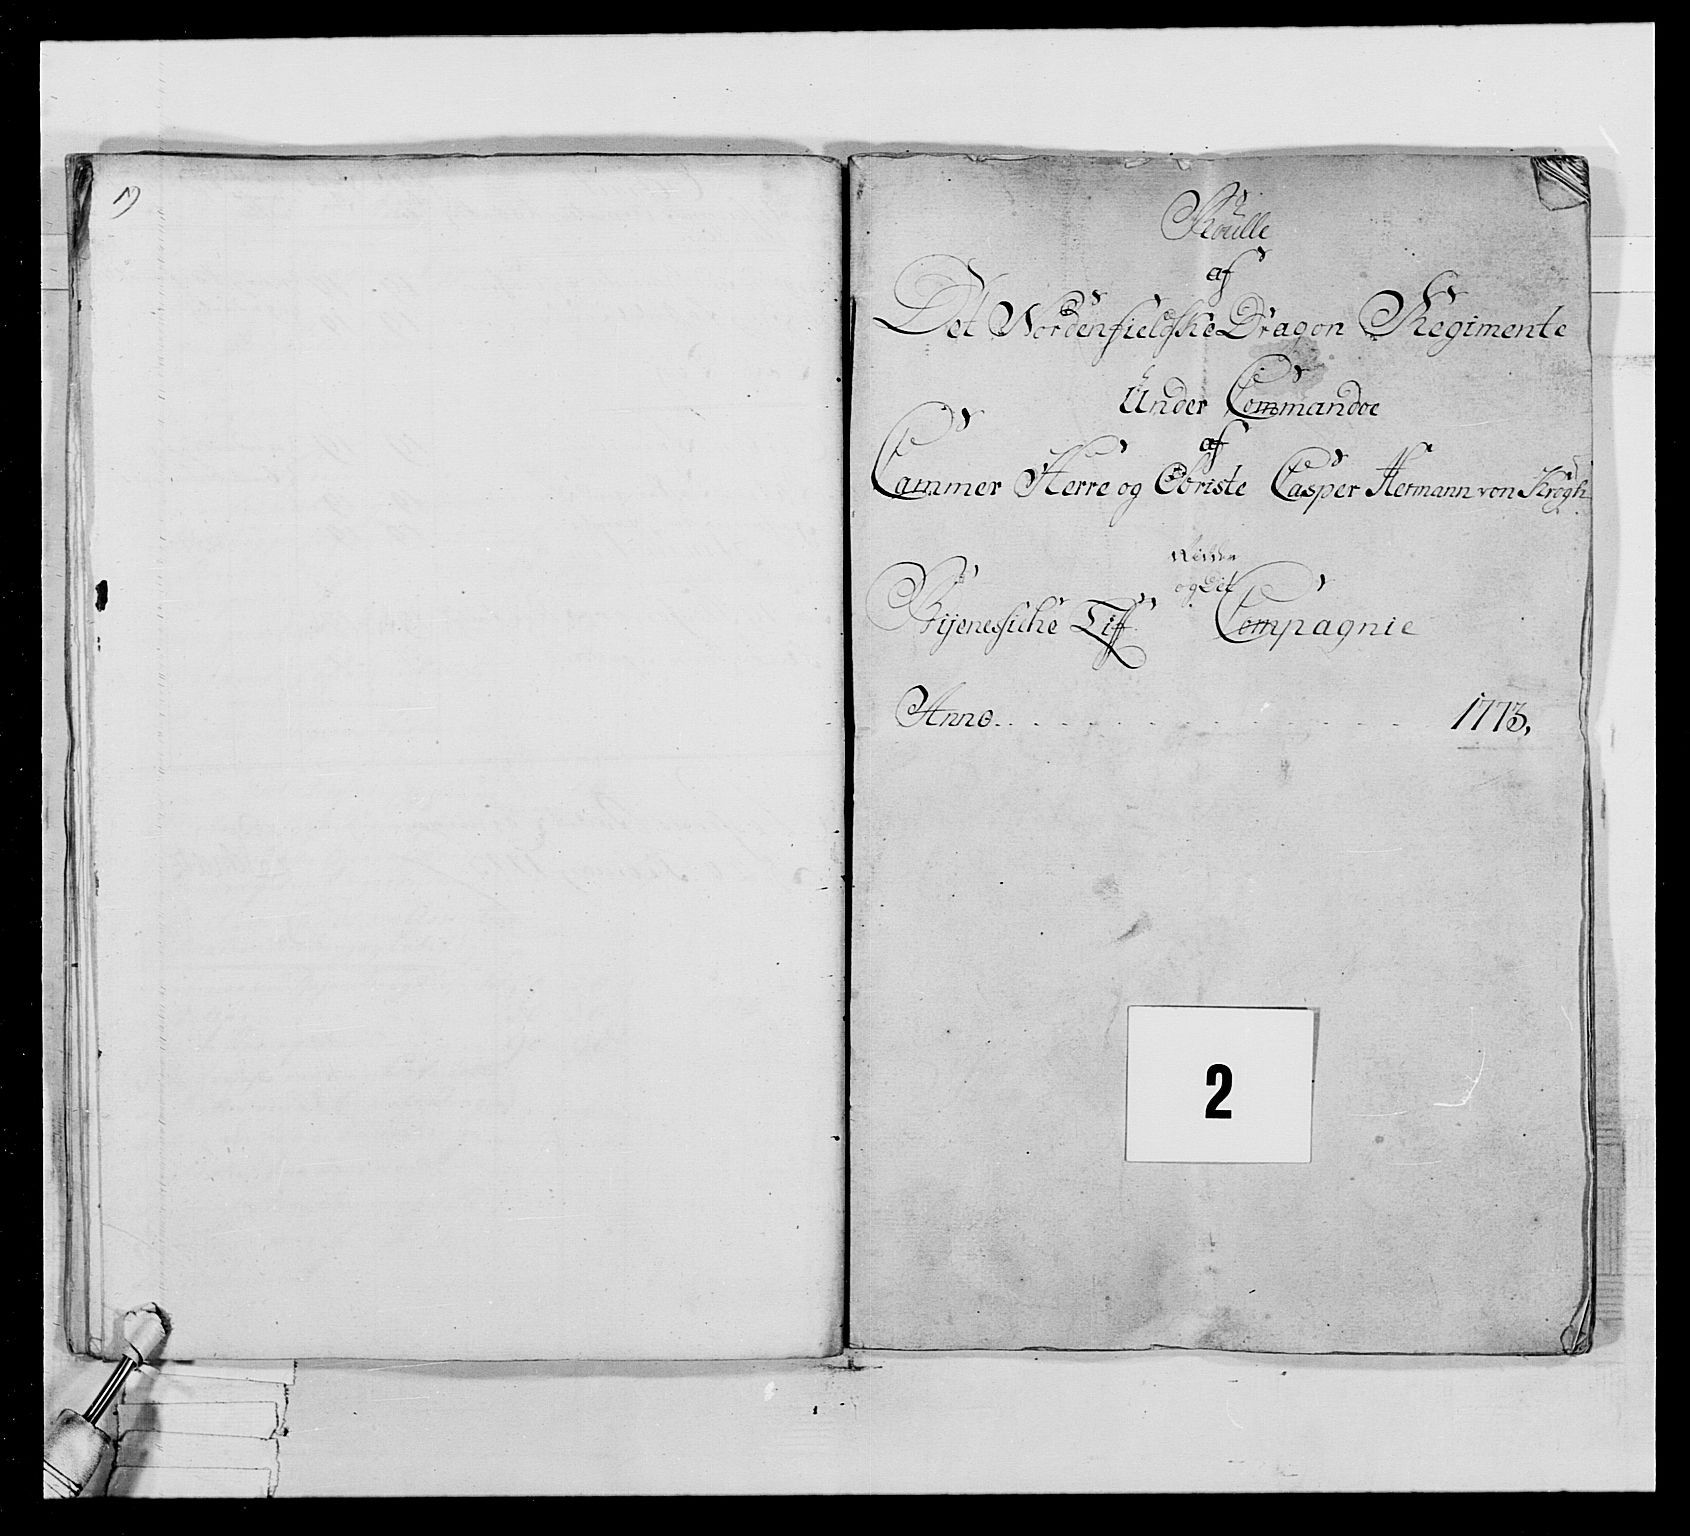 Roulle
af
Det Nordenfieldske Dragon Regimente
Under Commandoe
af
Cammer Herre og Obriste Casper Hermann von Krogh
og det
Compagnie
Anno . . . . . . . . . . . 1773,
2